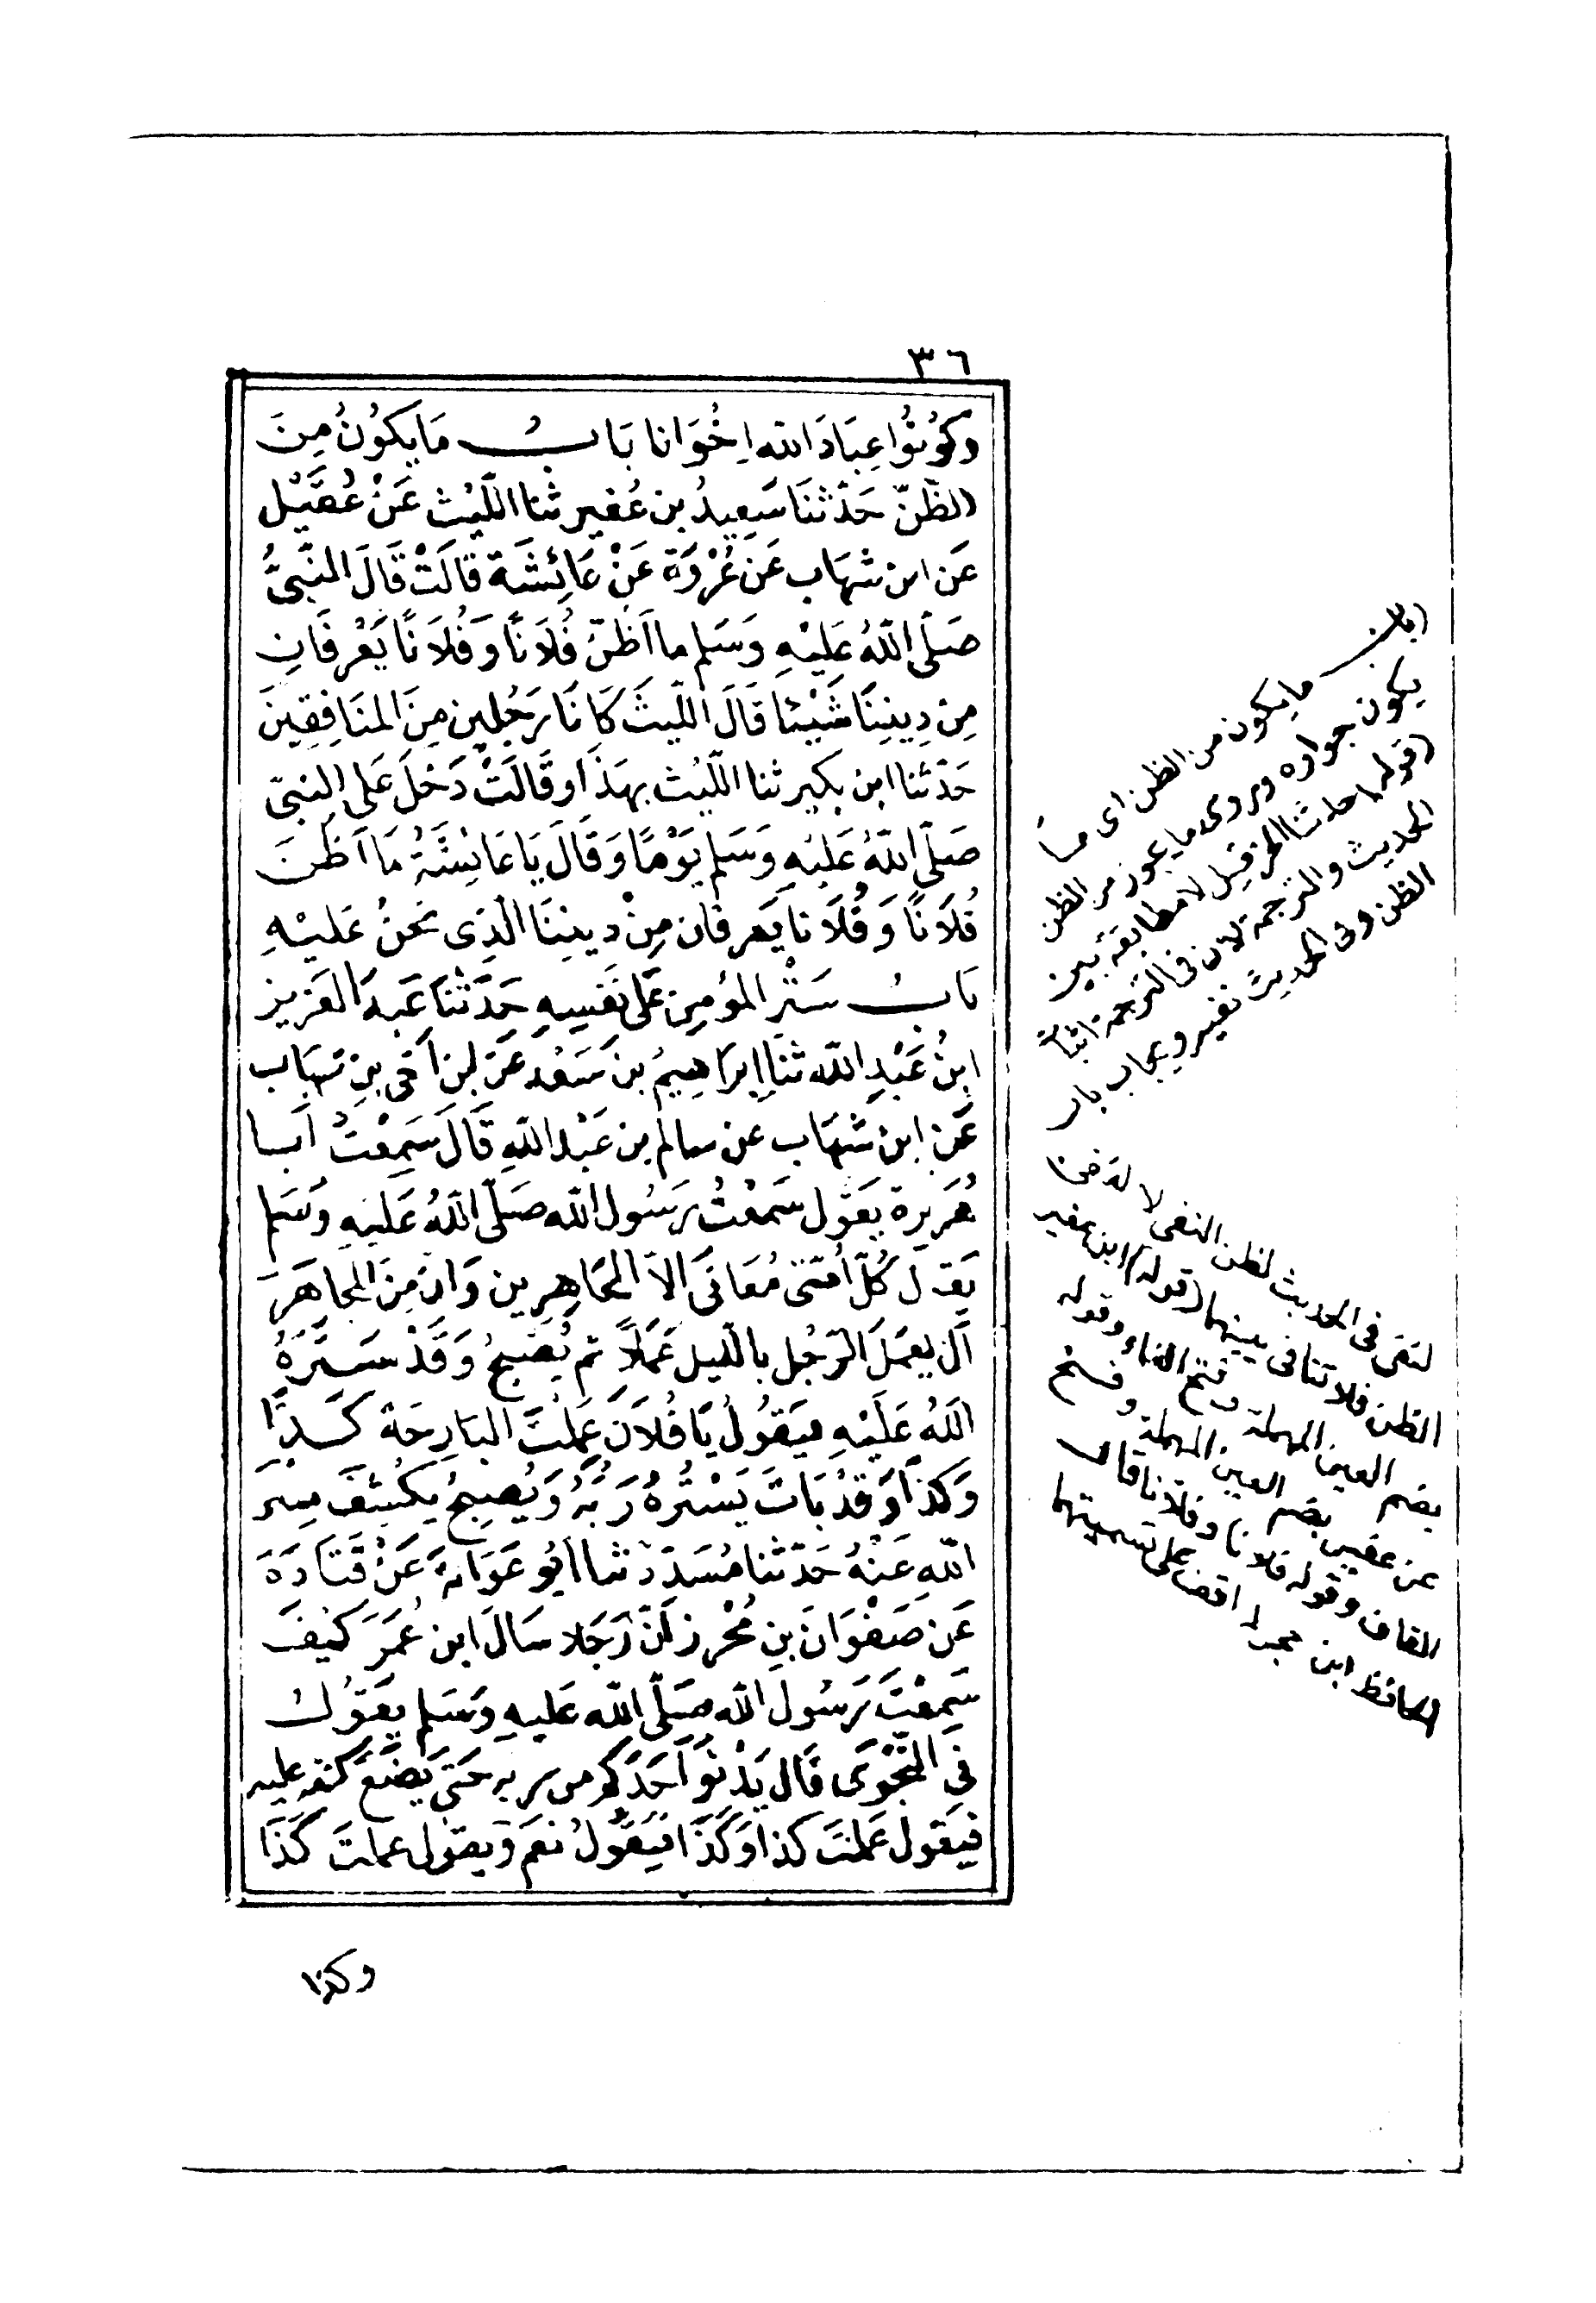 ٣٦
وَكُونُوا عِبَادَ الله اِخْوَانا بَابُ مَا يَكُونُ مِنَ
الظَّنّ حَدّثنَا سَعِيدُ بن عُفير ثنا اللّيْث عَنْ عُقَيْل
عَن ابن شهَاب عَن عُرْوَة عَنْ عَائِشَة قالَتْ قَالَ النَّبيُّ
صَلّى اللّهُ عَلَيْهِ وَسَلم ما اَظنّ فُلَانًا وَفُلَانًا يَعْرفَانِ
مِن دِينِنَا شَيْئا قَالَ اللّيثَ كَانَا رَجُلين مِنَ المنَافِقِينَ
حَدّثنا ابن بكير ثنا اللّيْث بهَذَا وقَالَتْ دَخَلَ عَلى النبيّ
صَلّى اللّهُ عَلَيْهِ وَسَلم يَوْمًا وَقَالَ يَا عَائِشَةُ مَا اَظن
فُلَانًا وَفُلَانا يَعرفان مِنْ دِيننَا الّذِى نحْنُ عَليْهِ
بَابُ سَتْر المؤمِن عَلى نَفسِهِ حَدّثنَا عَبدُ العَزيز
ابنُ عَبْدِ اللّه ثنَا اِبرَاهِيمُ بن سَعْد عَن ابن اَخى بنِ شهَاب
عَن ابن شهَاب عن سالم بن عَبْد اللّهِ قَالَ سَمِعْتُ اَبا
هُرَيرة يَقول سَمعْتُ رَسُول اللّه صَلّى اللّهُ عَليْهِ وَسَلم
يَقول كُلّ اُمّتى مُعَافَى الاّ المجَاهِرِين وَانّ مِنَ المجاهَرَ
اَن يعمَلَ الرّجُل بالليل عَمَلاً ثم يُصْبحُ وَقَدْ سَتَرَهُ
اللّهُ عَلَيْهِ فيَقُولُ يَا فُلَانُ عَمِلْتُ البَارِحَة كَذا
وَكذَا وَقَدْ بَاتَ يَسْتُرُهُ رَبّهُ وَيُصبِحُ يَكْشِفُ سِترَ
اللّهِ عَنْهُ حَدّثنا مُسَدّد ثنا اَبُو عَوَانة عَنْ قَتَادَة
عَن صَفْوَان بنِ مُحْرز اَنّ رَجُلا سَالَ ابن عُمَرَ كَيْفَ
سَمِعْتَ رَسُولَ اللّه صَلّى اللّه عَليهِ وَسَلم يقُولُ
فى النّجْوَى قَال يَدْنُو اَحَدكُم من ربه حَتى يَضَعَ كنفه عليه
فيَقول عَملتَ كذا وَكَذَا فيَقُولُ نعَم وَيقول عملتَ كَذَا
وكذا
(باب) ما يكون من الظن اى ما
يكون جوازه ويروى ما يجوز من الظن
(قوله) حدثنا الخ قيل لا مطابقة بين
الحديث والترجمة لان فى الترجمة اثبات
الظن وفى الحديث نفيه ويجاب بان
النفى فى الحديث لظن النفى لا لنفى
الظن فلا تنافى بينهما (قوله) ابن عفير
بضم العين المهملة وفتح الفاء وقوله
عن عقيل بضم العين المهملة وفتح
القاف وقوله فلانا وفلانا قال
الحافظ ابن حجر لم اقف على تسميتهما